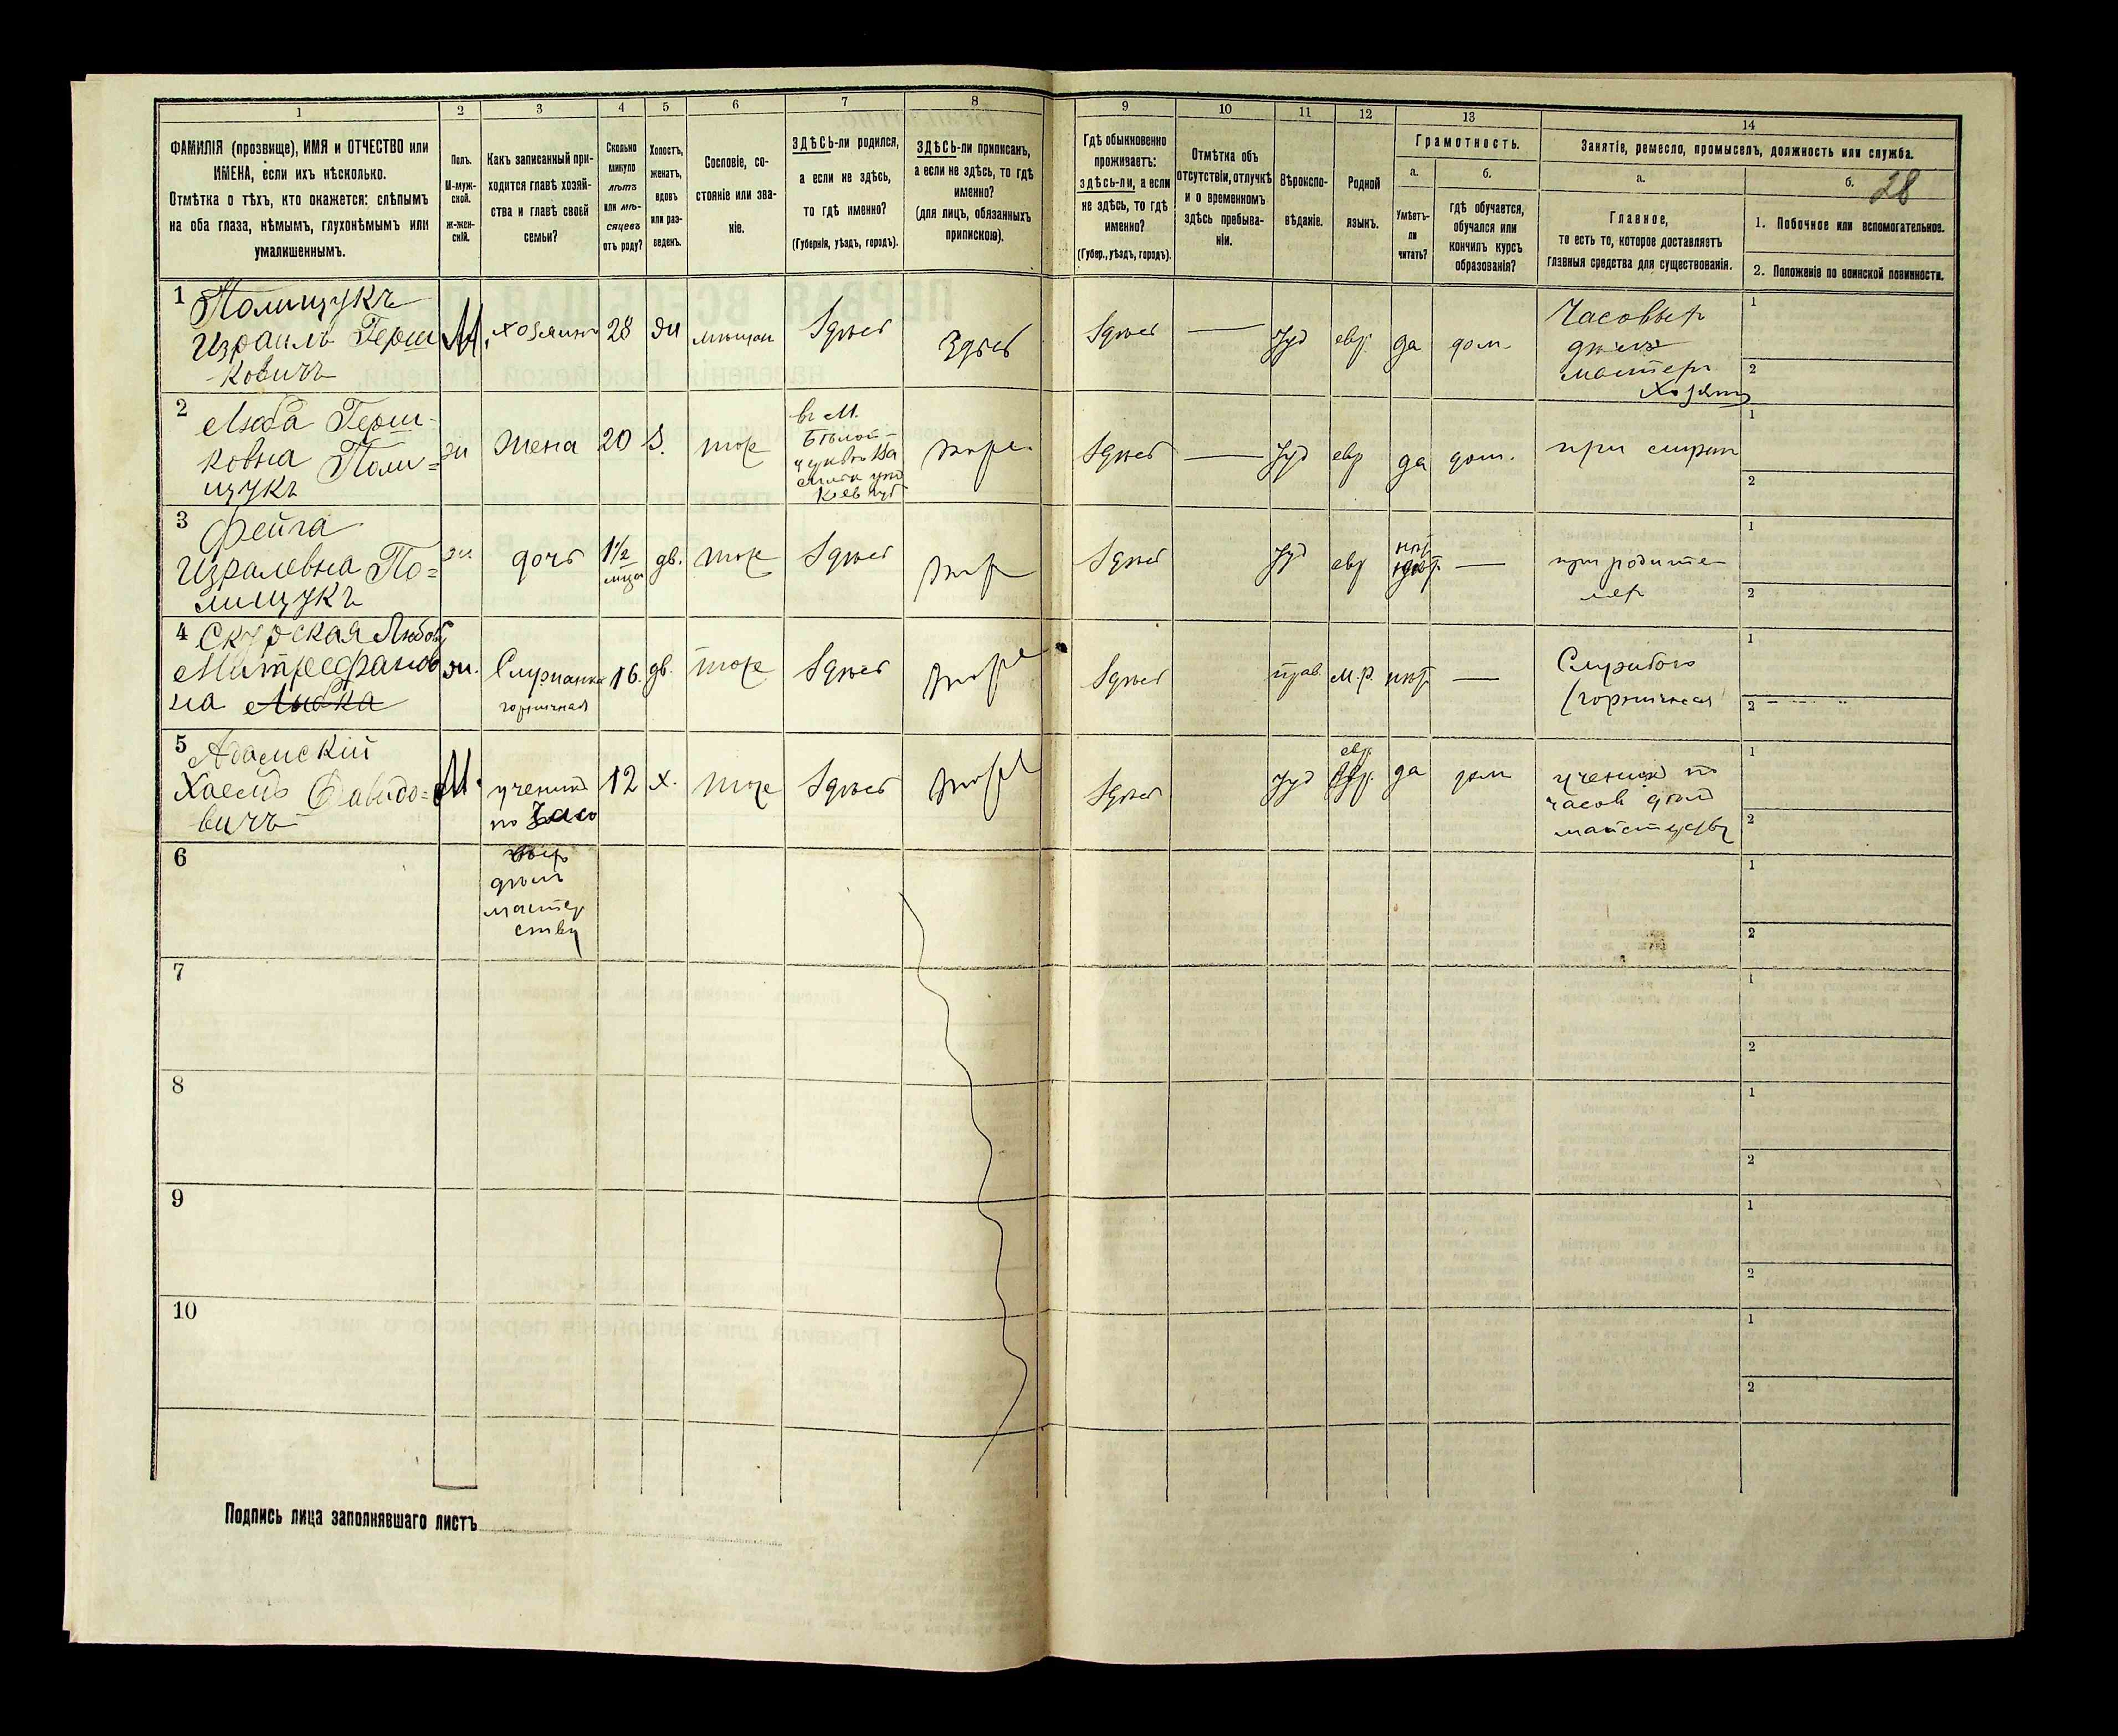 1
ФАМИЛІЯ (прозвище), ИМЯ и ОТЧЕСТВО или
ИМЕНА, если ихъ нѣсколько.
Отмѣтка о тѣхъ, кто окажется: слѣпымъ
на оба глаза, нѣмымъ, глухонѣмымъ или
умалишеннымъ.
2
Полъ.
М-муж-
ской.
ж-жен-
скій.
3
Какъ записанный при-
ходится главѣ хозяй-
ства и главѣ своей
семьи?
4
Сколько
минуло
лѣтъ
или мѣ-
сяцевъ
отъ роду?
5
Холостъ,
женатъ,
вдовъ
или раз-
веденъ.
6
Сословіе, со-
стояніе или зва-
ніе.
7
ЗДѢСЬ-ли родился,
а если не здѣсь,
то гдѣ именно?
(Губернія, уѣздъ, городъ).
8
ЗДѢСЬ-ли приписанъ,
а если не здѣсь, то гдѣ
именно?
(для лицъ, обязанныхъ
припискою).
9
Гдѣ обыкновенно
проживаетъ:
здѣсь-ли, а если
не здѣсь, то гдѣ
именно?
(Губер., уѣздъ, городъ).
10
Отмѣтка объ
отсутствіи, отлучкѣ
и о временномъ
здѣсь пребыва-
ніи.
11
Вѣроиспо-
вѣданіе.
12
Родной
языкъ.
13
Грамотность.
а.
Умѣетъ-
ли
читать?
б.
гдѣ обучается,
обучался или
кончилъ курсъ
образованія?
14
Занятіе, ремесло, промыселъ, должность или служба.
а.
Главное,
то есть то, которое доставляетъ
главныя средства для существованія.
б.
28
1. Побочное или вспомогательное.
2. Положеніе по воинской повинности.
1
Полищукъ
Израиль Герш
ковичъ
М.
хозяинъ
28
жн
мѣщан
Здѣсь
Здѣсь
Здѣсь
—
Іуд
евр
да
дом.
Часовыхъ
дѣлъ
мастеръ
хозяинъ
1
2
2
Люба Герш-
ковна Поли=
щукъ
жн
Жена
20
З.
тоже
въ М.
Бѣлой-
Церкви Ва
силк уѣз
Кіев губ
тоже
Здѣсь
—
Іуд
евр
да
дом.
при мужѣ
1
2
3
Фейга
Израилевна По=
лищукъ
жн
дочь
1½
мѣца
дв.
тоже
Здѣсь
тоже
Здѣсь
Іуд
евр
нѣт
—
при родите-
лях
1
2
4
Любовь
Митрофанов
на Любка
жн.
Служанка
горничная
16.
дв.
тоже
Здѣсь
тоже
Здѣсь
прав.
М.р.
нѣт
—
(горничная
1
2
5
Адамскій
Хаемъ Давидо=
вичъ
М.
ученикъ
по Часо
выхъ
дѣлъ
мастер
ству
12
х.
тоже
Здѣсь
тоже
Здѣсь
Іуд
евр.
да
дом
ученикъ по
часов дѣлъ
мастерству
1
2
6
1
2
7
1
2
8
1
2
9
1
2
10
1
2
Подпись лица заполнявшаго листъ